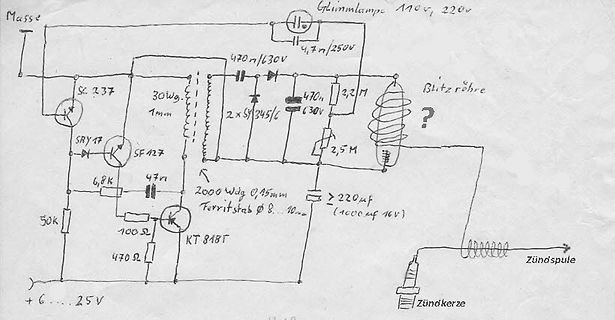 Glimmlampe 110V, 220V
Masse
4,7n/250V
SC 237
470n/630V
30 Wg.
1mm
470n
630V
2,2M
Blitzröhre
?
SAY 17
SF 127
2x SY 345/6
2,5M
6,8K
47n
2000 Wdg 0,15mm
Ferritstab Ø 8...10mm
≥ 220µf
(1000µf 16V)
50K
100Ω
KT 818Г
470Ω
Zündspule
Zündkerze
+ 6 .... 25V